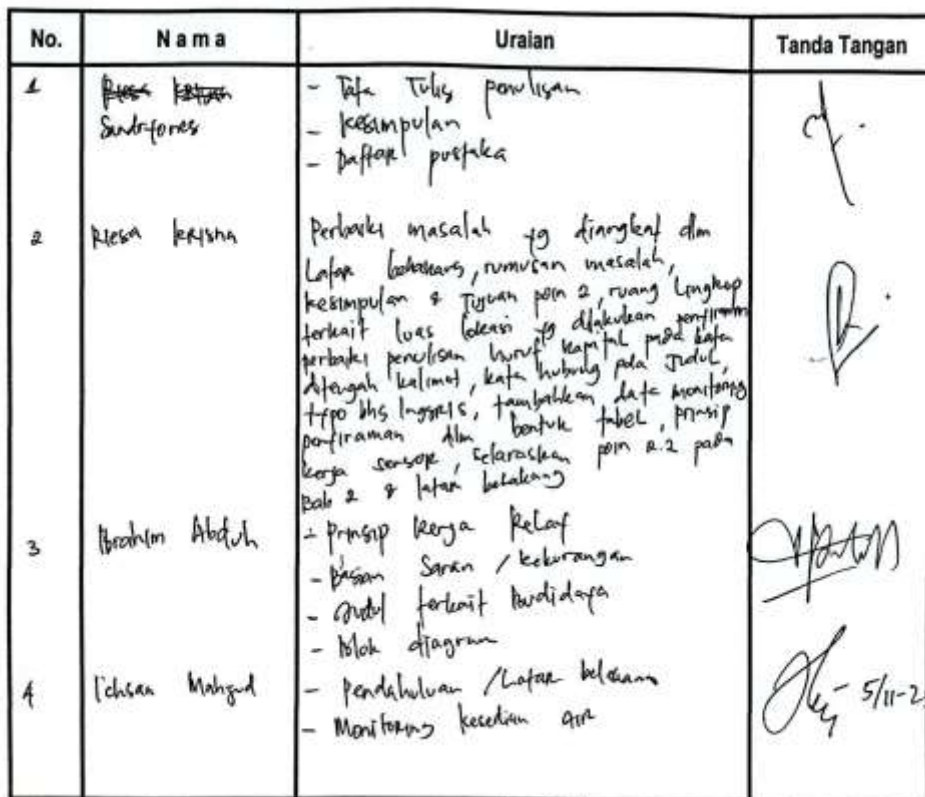 No. Nama Uraian Tanda Tangan
1 Riesa Krisna - Tata Tulis penulisan
Sandryones - Kesimpulan
- Daftar pustaka
2 Riesa Krisna Perbaiki masalah yg diangkat dlm
Latar belakang, rumusan masalah,
kesimpulan & Tujuan poin 2, ruang Lingkup
terkait luas lokasi yg dilakukan penyiraman
perbaiki penulisan huruf kapital pada kata
ditengah kalimat, kata hubung pada Judul,
typo bhs Inggris, tambahkan data monitoring
penyiraman dlm bentuk tabel, prinsip
kerja sensor, selaraskan poin 2.2 pada
Bab 2 & latar belakang
3 Ibrahim Abduh - Prinsip kerja Relay
- Bagian Saran / kekurangan
- Judul terkait budidaya
- Blok diagram
4 Ichsan Mahjud - Pendahuluan / Latar belakang
- Monitoring kesedian air 5/11-2